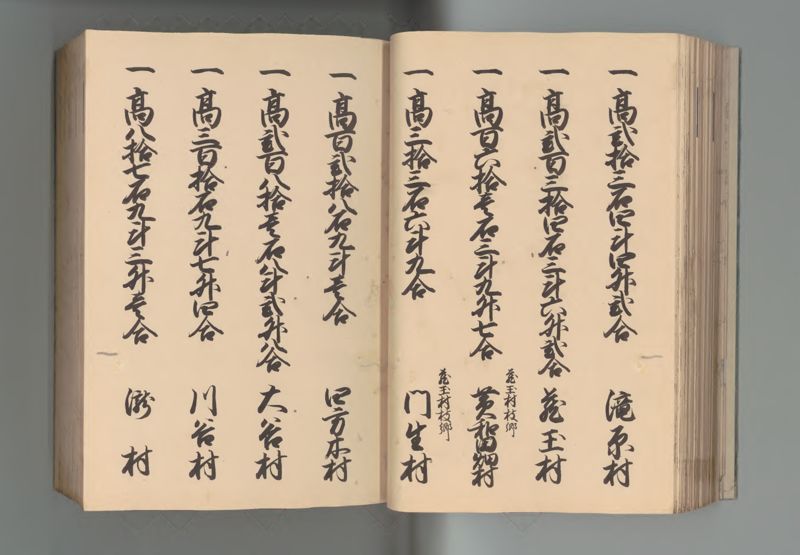 一 高弐拾三石四斗四升弐合 滝原村
一 高弐百三拾四石三斗六升弐合 蔵玉村
蔵玉村枝郷
一 高百六拾壱石三斗九升七合 黄和田畑村
蔵玉村枝郷
一 高三拾三石六斗九合 門生村
一 高百弐拾八石九斗壱合 四方木村
一 高弐百八拾壱石八斗弐升八合 大谷村
一 高三百拾石九斗七升四合 川谷村
一 高八拾七石九斗三升壱合 瀧村